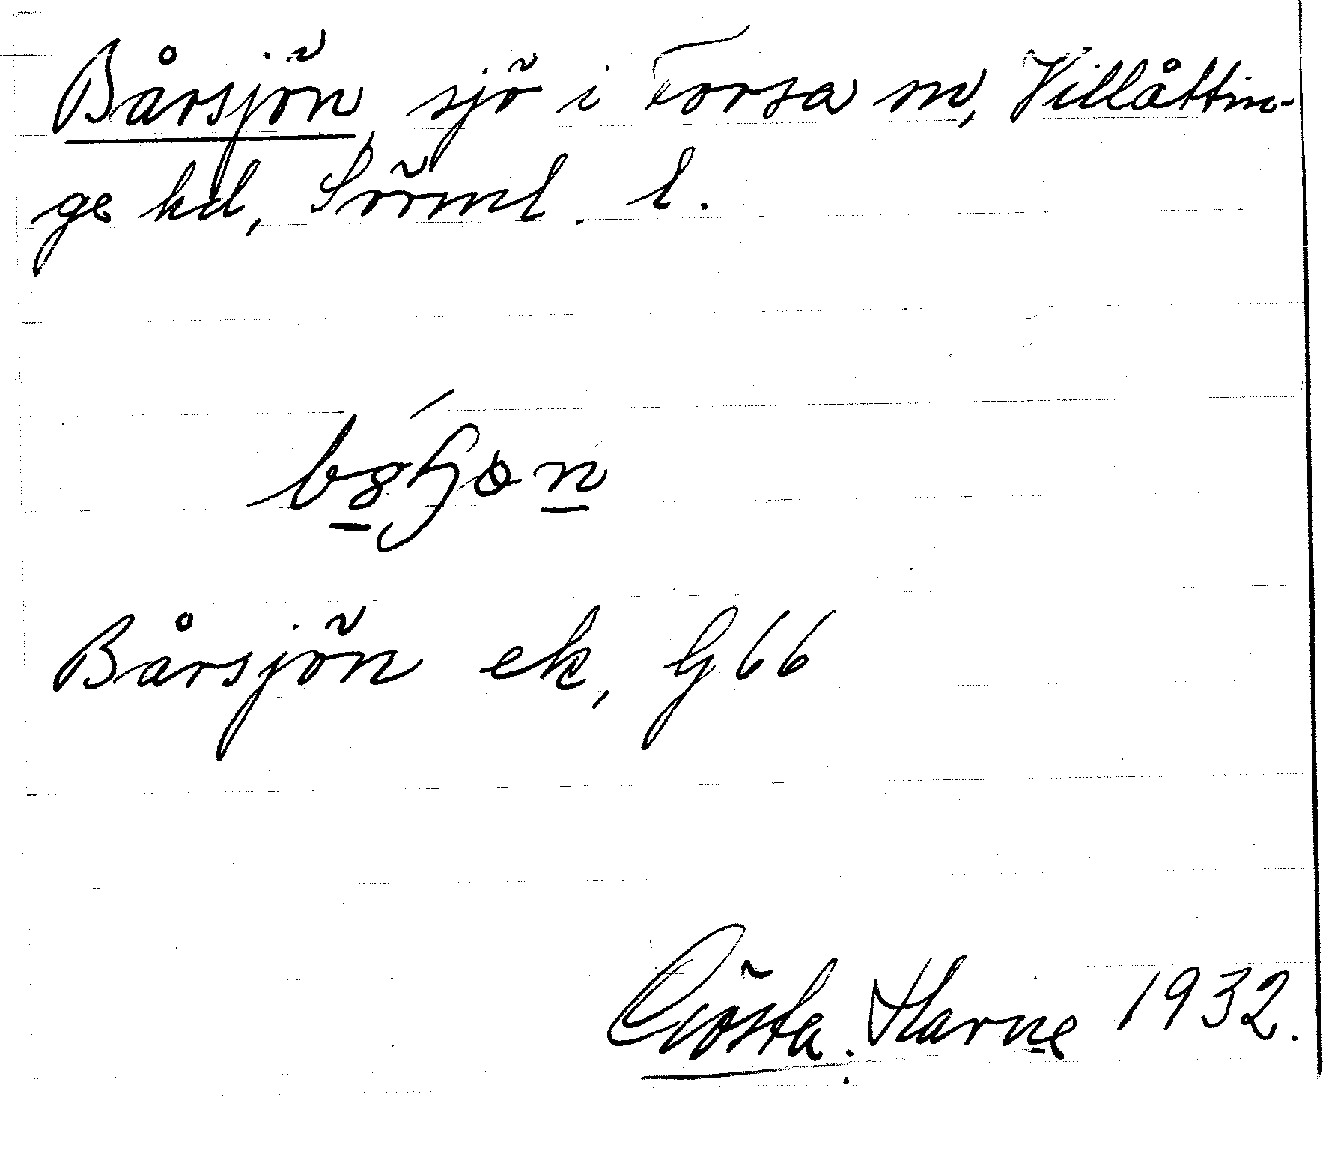 Bårsjön, sjö i Forsa sn, Villåttin-
ge hd, Sörml. l.
Bårsjön ek, G 66
Gösta Harne 1932.